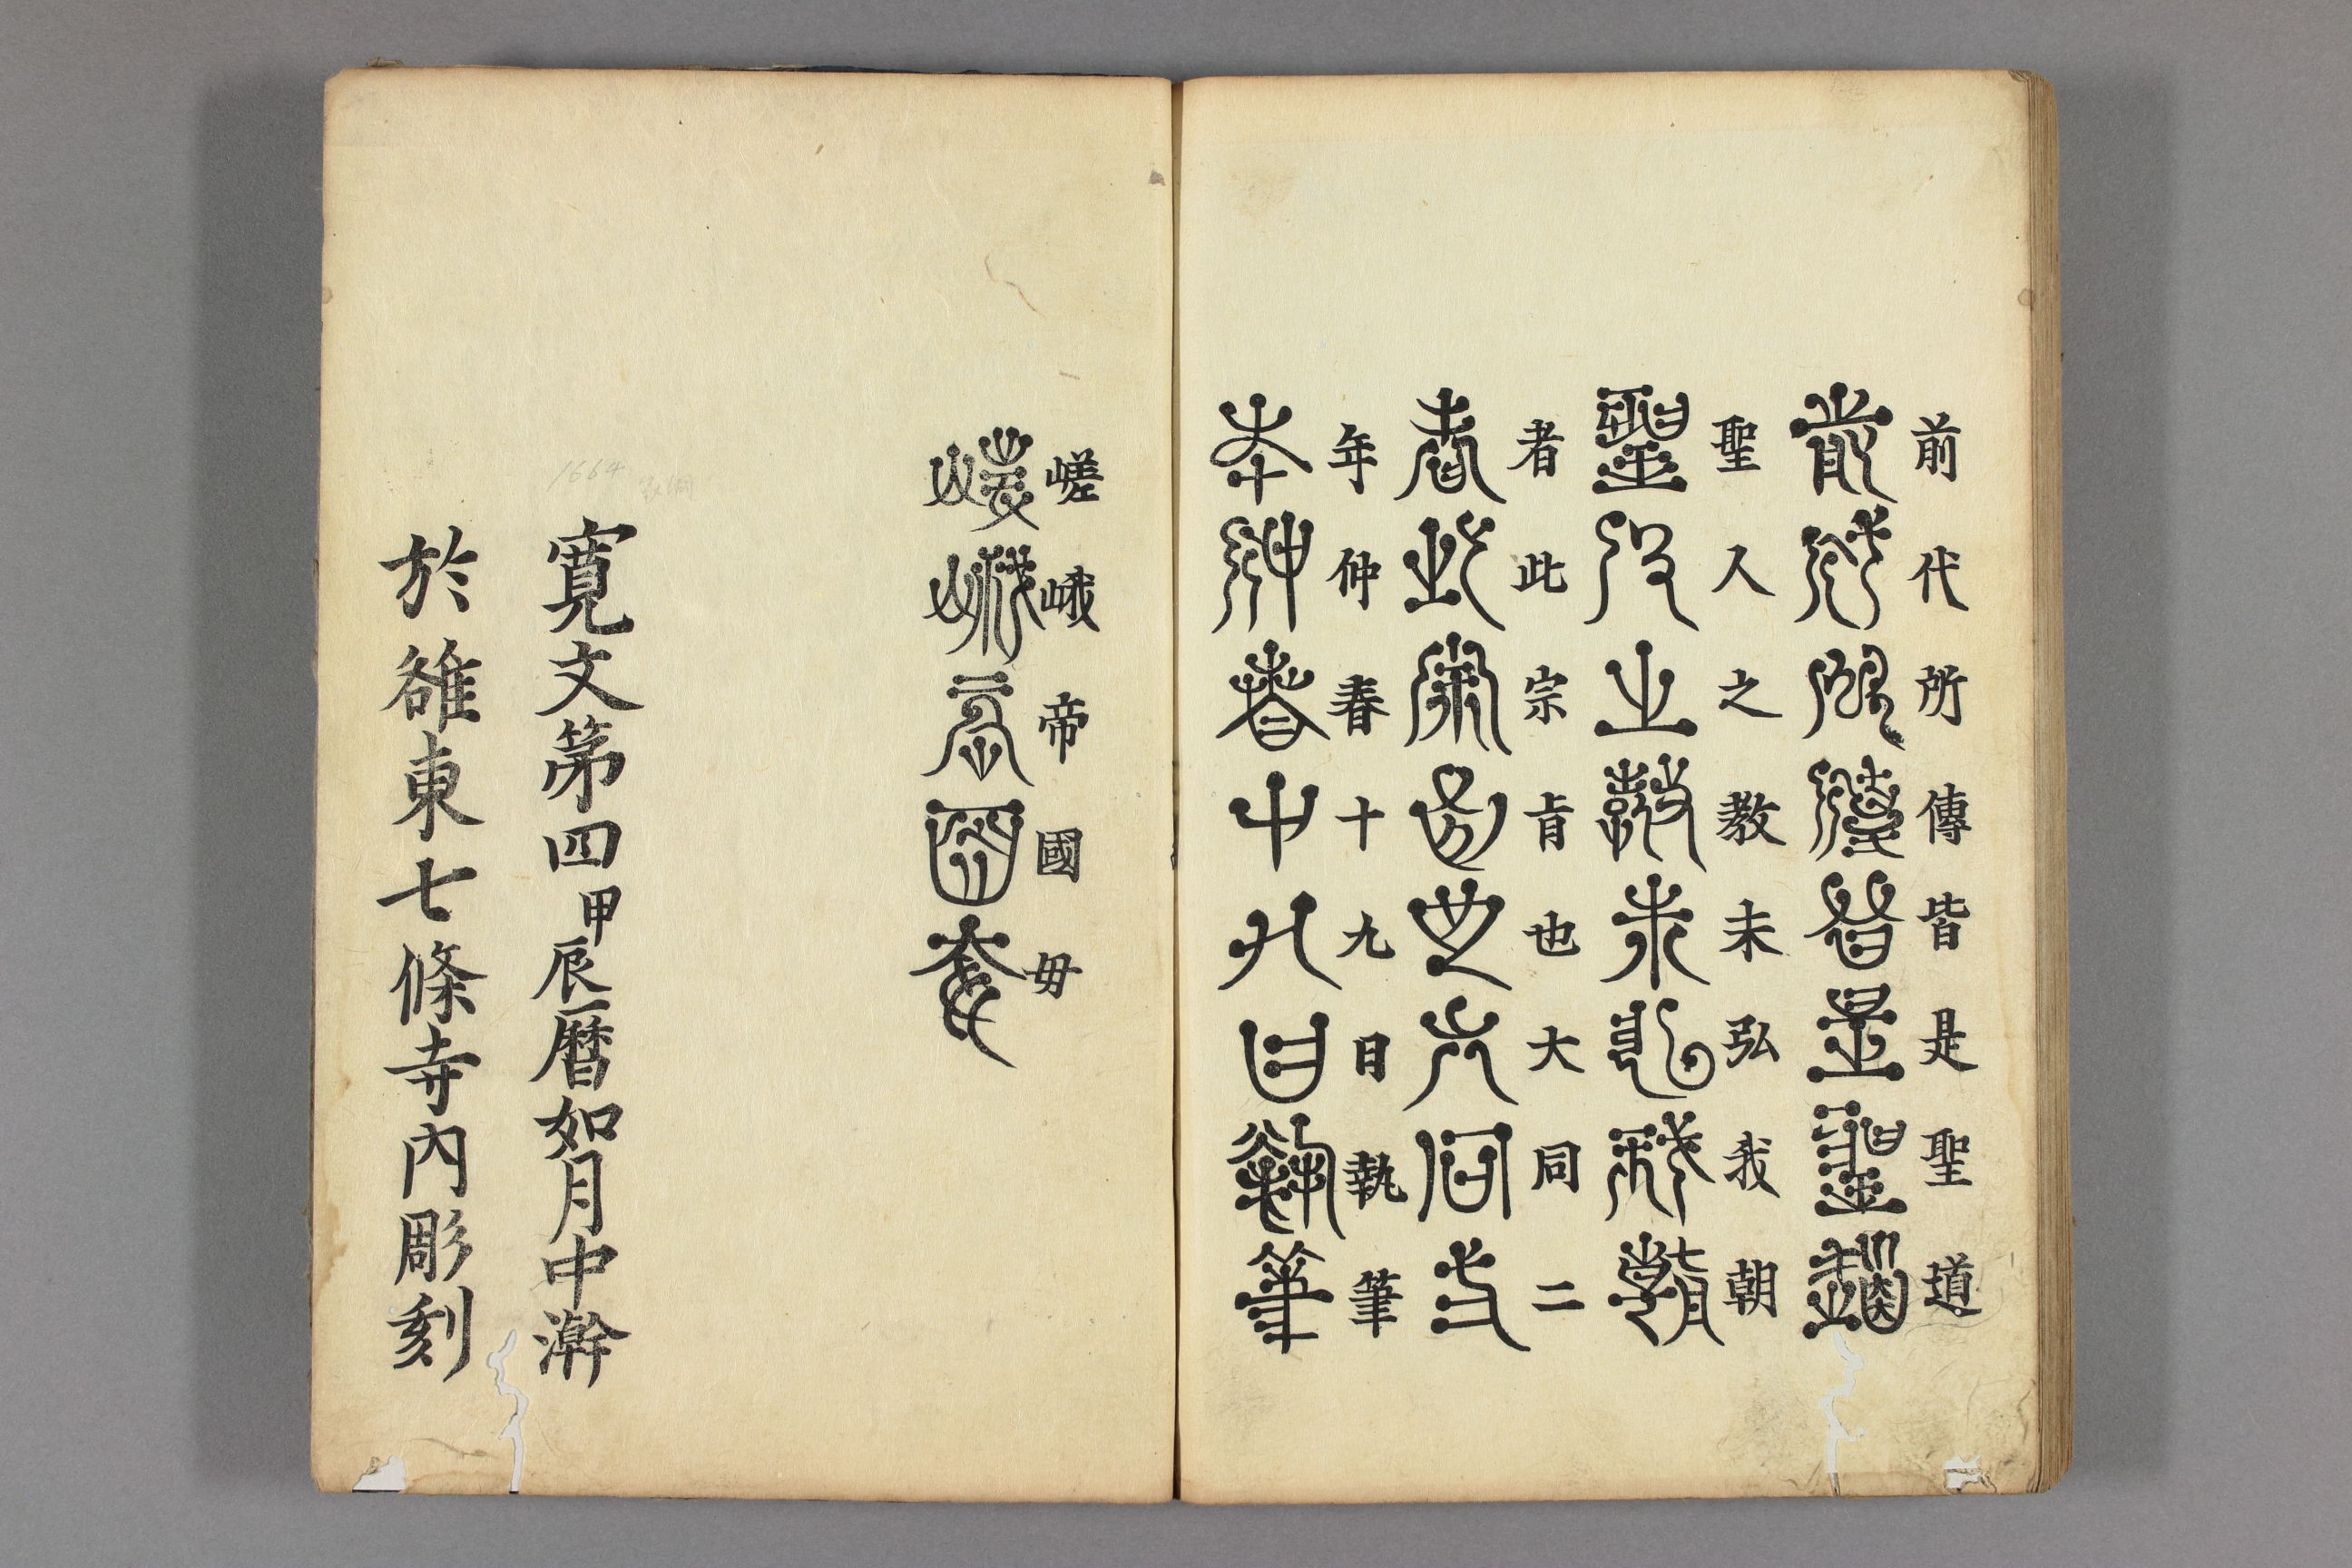 前代所傳皆是聖道
聖人之教未弘我朝
者此宗肯也大同二
年仲春十九日執筆
嵯峨帝國母
1664
寛文第四甲辰曆如月中澣
於雒東七條寺內彫刻